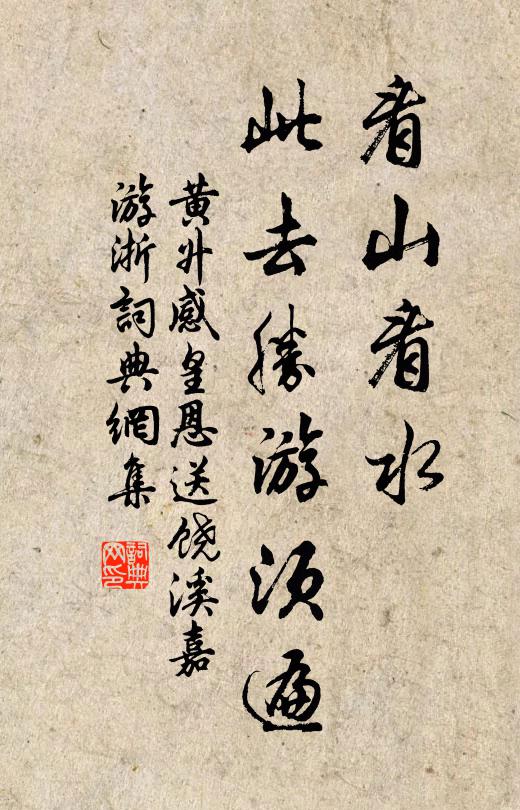 看山看水
此去勝游须遍
黄升感皇恩送饶溪嘉
游浙詞典網集
詞典網印